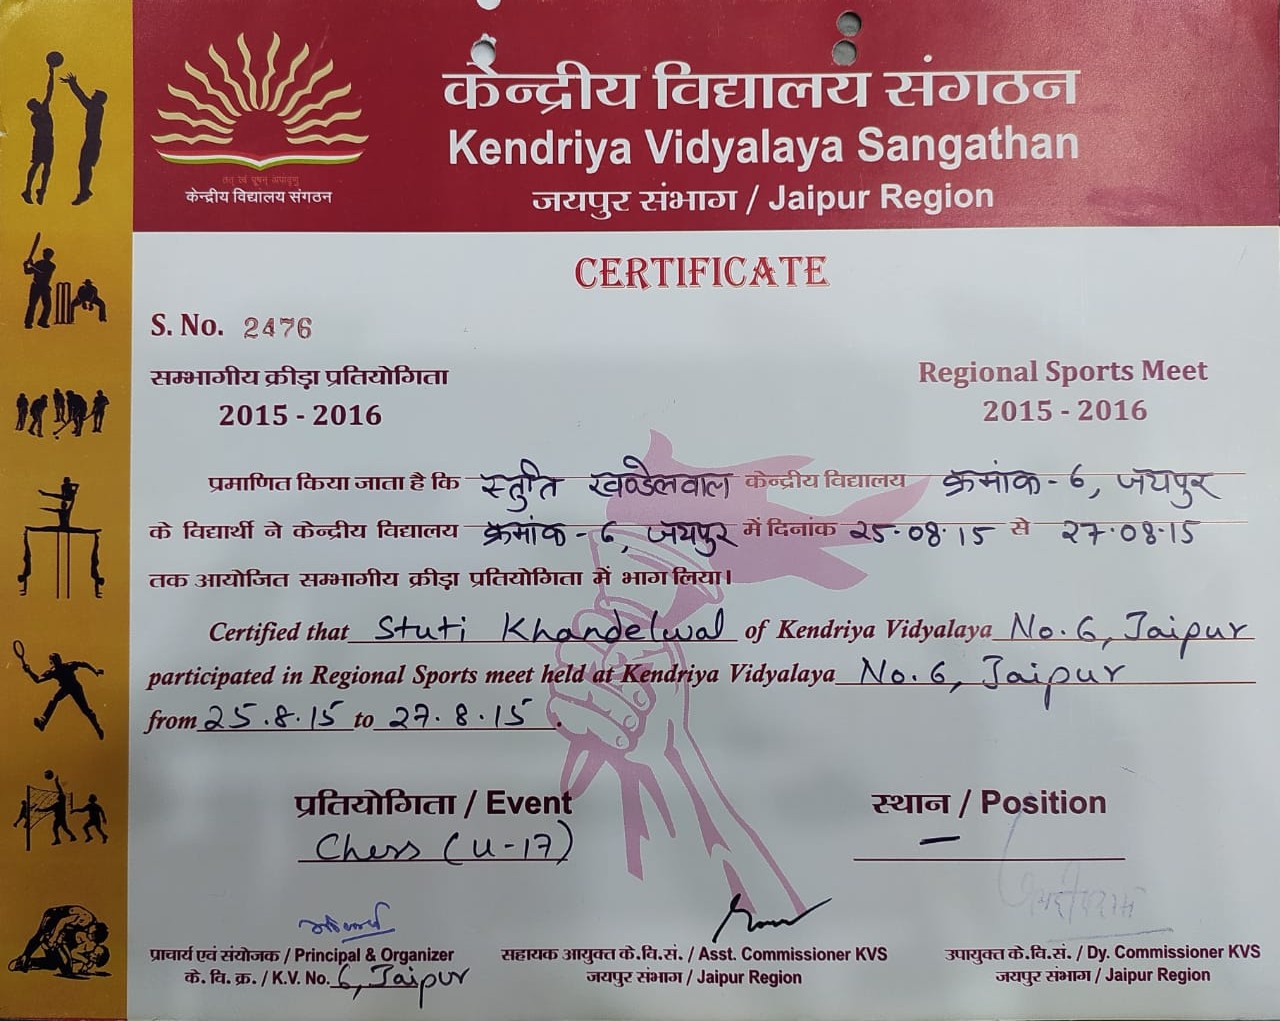 केन्द्रीय विद्यालय संगठन
Kendriya Vidyalaya Sangathan
जयपुर संभाग / Jaipur Region
तत् त्वं पूषन् अपावृणु
केन्द्रीय विद्यालय संगठन
CERTIFICATE
S. No. 2476
सम्भागीय क्रीड़ा प्रतियोगिता
2015 - 2016
Regional Sports Meet
2015 - 2016
प्रमाणित किया जाता है कि स्तुति खण्डेलवाल केन्द्रीय विद्यालय क्रमांक - 6, जयपुर
के विद्यार्थी ने केन्द्रीय विद्यालय क्रमांक - 6, जयपुर में दिनांक 25.08.15 से 27.08.15
तक आयोजित सम्भागीय क्रीड़ा प्रतियोगिता में भाग लिया।
Certified that Stuti Khandelwal of Kendriya Vidyalaya No. 6, Jaipur
participated in Regional Sports meet held at Kendriya Vidyalaya No. 6, Jaipur
from 25.8.15 to 27.8.15.
प्रतियोगिता / Event
Chess (U-17)
स्थान / Position
—
प्राचार्य एवं संयोजक / Principal & Organizer
के. वि. क्र. / K.V. No. 6, Jaipur
सहायक आयुक्त के.वि.सं. / Asst. Commissioner KVS
जयपुर संभाग / Jaipur Region
उपायुक्त के.वि.सं. / Dy. Commissioner KVS
जयपुर संभाग / Jaipur Region